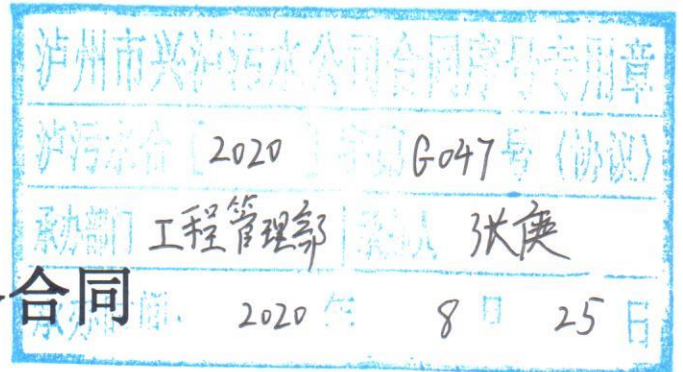 泸州市兴泸污水公司合同序号专用章
泸污水合[2020]字第G047号(协议)
承办部门 工程管理部 承办人 张庚
合同
承办时间: 2020年8月25日